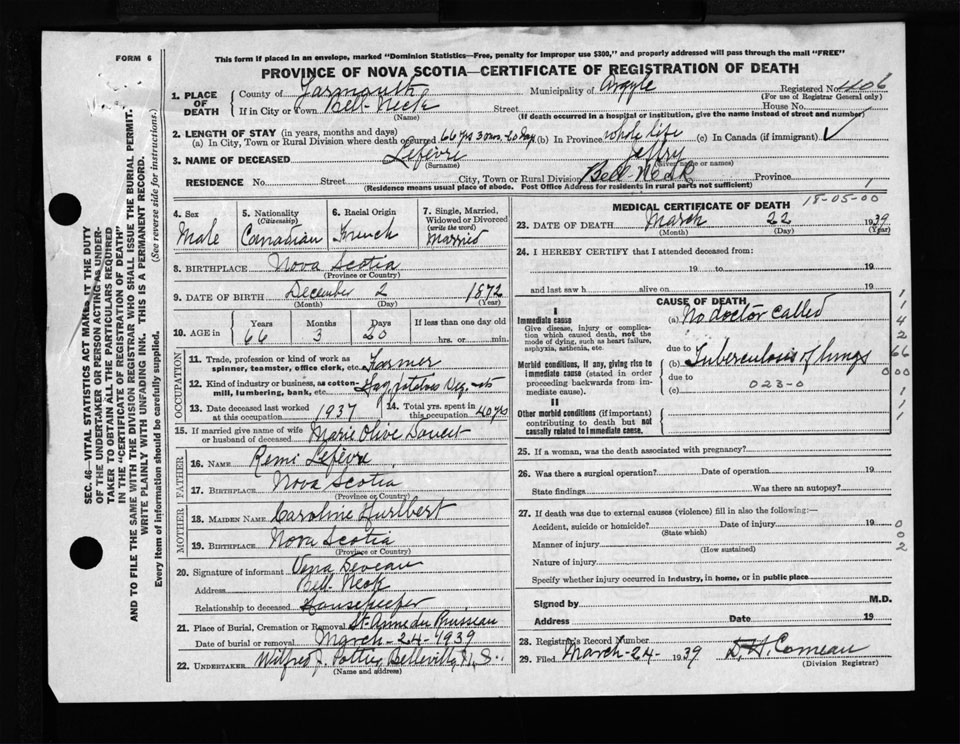 FORM 6
This form if placed in an envelope, marked "Dominion Statistics—Free, penalty for improper use $300," and properly addressed will pass through the mail "FREE"
PROVINCE OF NOVA SCOTIA—CERTIFICATE OF REGISTRATION OF DEATH
1. PLACE OF DEATH
County of Yarmouth Municipality of Argyle Registered No. 1106
(For use of Registrar General only)
If in City or Town Bell-Neck Street House No.
(Name) (If death occurred in a hospital or institution, give the name instead of street and number)
2. LENGTH OF STAY (in years, months and days)
(a) In City, Town or Rural Division where death occurred 66 yrs 3 mos. 20 days (b) In Province whole life (c) In Canada (if immigrant)
3. NAME OF DECEASED Lefèvre Jeffry
(Surname) (Given name or names)
RESIDENCE No. Street City, Town or Rural Division Bell-Neck Province
(Residence means usual place of abode. Post Office Address for residents in rural parts not sufficient)
4. Sex Male
5. Nationality (Citizenship) Canadian
6. Racial Origin French
7. Single, Married, Widowed or Divorced (write the word) Married
8. BIRTHPLACE Nova Scotia
(Province or Country)
9. DATE OF BIRTH December 2 1872
(Month) (Day) (Year)
10. AGE in Years Months Days If less than one day old
66 3 20 hrs. or min.
OCCUPATION
11. Trade, profession or kind of work as spinner, teamster, office clerk, etc. Farmer
12. Kind of industry or business, as cotton mill, lumbering, bank, etc.
13. Date deceased last worked at this occupation 1937
14. Total yrs. spent in this occupation 40 yrs
15. If married give name of wife or husband of deceased Marie Olive Doucet
FATHER
16. NAME Remi Lefèvre
17. BIRTHPLACE Nova Scotia
(Province or Country)
MOTHER
18. MAIDEN NAME Caroline Hurlbert
19. BIRTHPLACE Nova Scotia
(Province or Country)
20. Signature of informant Vena Deveau
Address Bell-Neck
Relationship to deceased Housekeeper
21. Place of Burial, Cremation or Removal St-Anne du Ruisseau
Date of burial or removal March-24-1939
22. UNDERTAKER Wilfred J. Pottier, Belleville, N.S.
(Name and address)
18-05-00
1
MEDICAL CERTIFICATE OF DEATH
23. DATE OF DEATH March 22 1939
(Month) (Day) (Year)
24. I HEREBY CERTIFY that I attended deceased from:
19 to 19
and last saw h alive on 19
CAUSE OF DEATH
I
Immediate cause (a) No doctor called
Give disease, injury or complication which caused death, not the mode of dying, such as heart failure, asphyxia, asthenia, etc.
due to
Morbid conditions, if any, giving rise to immediate cause (stated in order proceeding backwards from immediate cause).
(b) Tuberculosis of lungs
due to
(c) 023-0
II
Other morbid conditions (if important) contributing to death but not causally related to immediate cause.
1
1
4
2
66
000
1
1
1
25. If a woman, was the death associated with pregnancy?
26. Was there a surgical operation? Date of operation 19
State findings Was there an autopsy?
27. If death was due to external causes (violence) fill in also the following:—
Accident, suicide or homicide? Date of injury 19
(State which)
Manner of injury
(How sustained)
Nature of injury
Specify whether injury occurred in industry, in home, or in public place
0
0
2
Signed by M.D.
Address Date 19
28. Registrar's Record Number
29. Filed March-24- 1939 D. H. Comeau
(Division Registrar)
SEC. 46—VITAL STATISTICS ACT MAKES IT THE DUTY
OF THE UNDERTAKER OR PERSON ACTING AS UNDERTAKER TO OBTAIN ALL THE PARTICULARS REQUIRED
IN THE "CERTIFICATE OF REGISTRATION OF DEATH"
AND TO FILE THE SAME WITH THE DIVISION REGISTRAR WHO SHALL ISSUE THE BURIAL PERMIT.
WRITE PLAINLY WITH UNFADING INK. THIS IS A PERMANENT RECORD.
Every item of information should be carefully supplied. (See reverse side for instructions.)